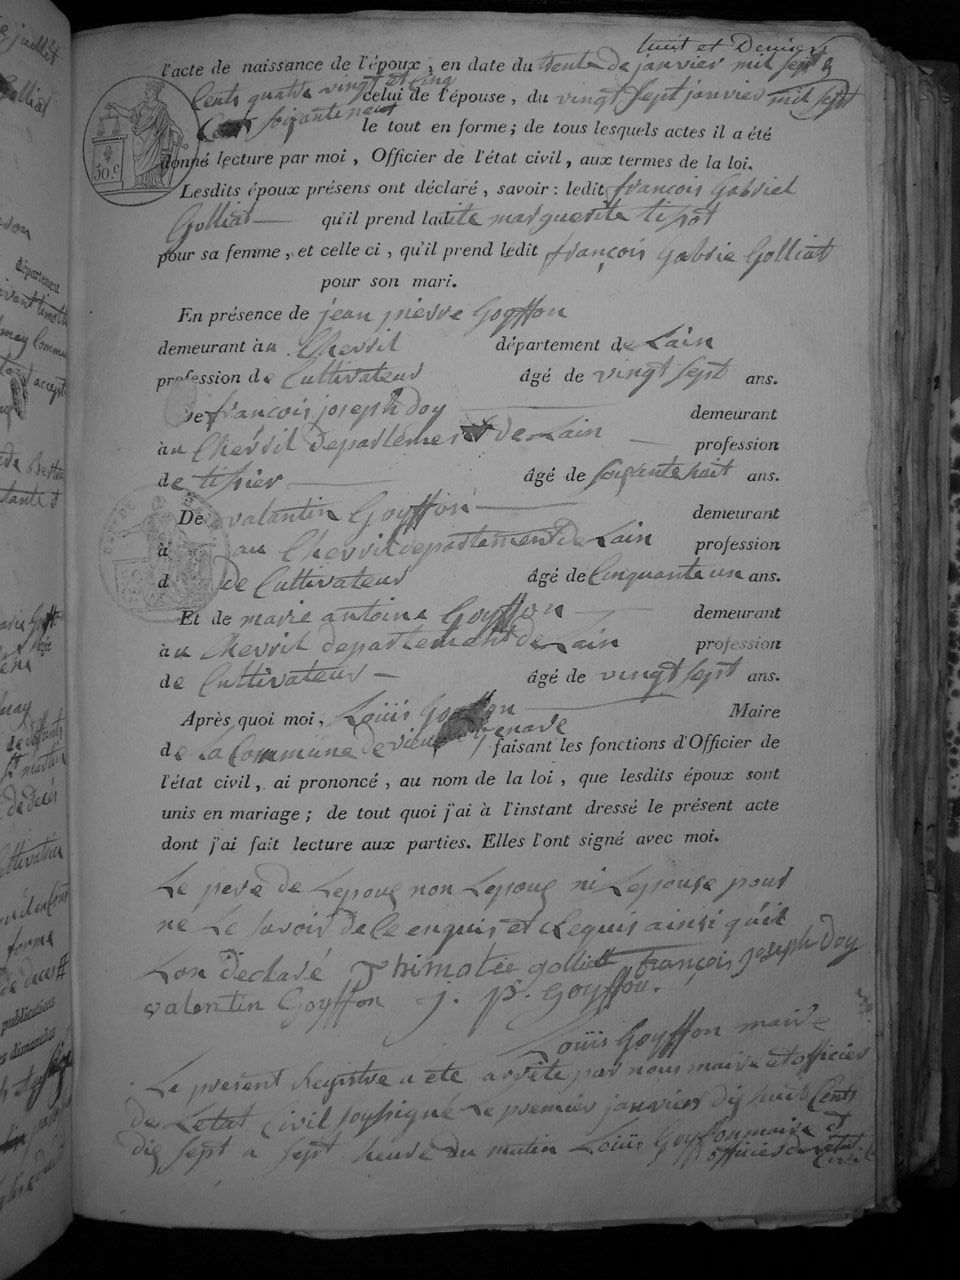 huit et Demi
l'acte de naissance de l'époux, en date du trente de janvier mil sept
Cents quatre vingt et cinq celui de l'épouse, du vingt sept janvier mil sept
Cent soixante neuf le tout en forme; de tous lesquels actes il a été
donné lecture par moi, Officier de l'état civil, aux termes de la loi.
Lesdits époux présens ont déclaré, savoir: ledit françois Gabriel
Golliat qu'il prend ladite marguerite tissot
pour sa femme, et celle ci, qu'il prend ledit françois Gabrie Golliat
pour son mari.
En présence de jéan pierre Goyffon
demeurant àu Chevril département de Lain
profession de Cultivateur âgé de vingt sept ans.
De françois joseph doy demeurant
àu Chevril département de Lain profession
de tissier âgé de soixante huit ans.
De valantin Goyffon demeurant
à au Chevril departement de Lain profession
d de Cultivateur âgé de Cinquante un ans.
Et de marie antoine Goyffon demeurant
àu Chevril departement de Lain profession
de Cultivateur âgé de vingt sept ans.
Après quoi moi, Loüis Goyffon Maire
de La Commune de vieu faisant les fonctions d'Officier de
l'état civil, ai prononcé, au nom de la loi, que lesdits époux sont
unis en mariage; de tout quoi j'ai à l'instant dressé le présent acte
dont j'ai fait lecture aux parties. Elles l'ont signé avec moi.
Le pere de Lepoux non Lepoux ni Lepouse pour
ne Le savoir de ce enquis et Requis ainsi qu'il
Lon déclaré thimotée golliat françois joseph Doy
valentin Goyffon j. p. Goyffon.
Loüis Goyffon maire
Le present Registre a été arrêté par nous maire et officier
de Letat Civil soussigné Le premier janvier dix huit Cents
dix sept a sept heure du matin Loüis Goyffon maire et
officier de letat Civil
50.c